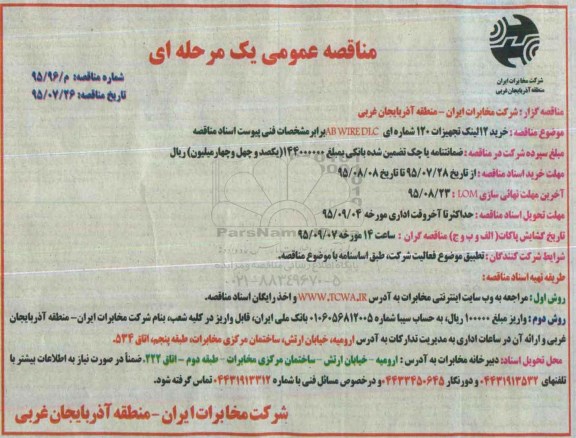 شرکت مخابرات ایران
منطقه آذربایجان غربی
مناقصه عمومی یک مرحله ای
شماره مناقصه: م/۹۵/۹۶
تاریخ مناقصه: ۹۵/۰۷/۲۶
مناقصه گزار: شرکت مخابرات ایران -منطقه آذربایجان غربی
موضوع مناقصه: خرید ۱۲لینک تجهیزات ۱۲۰ شماره ای AB WIRE DLC برابر مشخصات فنی پیوست اسناد مناقصه
مبلغ سپرده شرکت در مناقصه: ضمانتنامه یا چک تضمین شده بانکی بمبلغ ۱۴۴۰۰۰۰۰۰(یکصد و چهل و چهار میلیون) ریال
مهلت خرید اسناد مناقصه: از تاریخ ۹۵/۰۷/۲۸ تا تاریخ ۹۵/۰۸/۰۸
آخرین مهلت نهائی سازی LOM: ۹۵/۰۸/۲۳
مهلت تحویل اسناد مناقصه: حداکثر تا آخر وقت اداری مورخه ۹۵/۰۹/۰۴
تاریخ گشایش پاکات( الف و ب و ج) مناقصه گران: ساعت ۱۴ مورخه ۹۵/۰۹/۰۷
شرایط شرکت کنندگان: تطبیق موضوع فعالیت شرکت، طبق اساسنامه با موضوع مناقصه.
طریقه تهیه اسناد مناقصه:
روش اول: مراجعه به وب سایت اینترنتی مخابرات به آدرس WWW.TCWA.IR و اخذ رایگان اسناد مناقصه.
روش دوم: واریز مبلغ ۱۰۰۰۰۰ ریال، به حساب سیبا شماره ۰۱۰۶۰۵۶۸۱۲۰۰۵ بانک ملی ایران، قابل واریز در کلیه شعب، بنام شرکت مخابرات ایران- منطقه آذربایجان
غربی و ارائه آن در ساعات اداری به مدیریت تدارکات به آدرس ارومیه، خیابان ارتش، ساختمان مرکزی مخابرات، طبقه پنجم، اتاق ۵۳۴.
محل تحویل اسناد: دبیرخانه مخابرات به آدرس: ارومیه - خیابان ارتش - ساختمان مرکزی مخابرات - طبقه دوم - اتاق ۲۲۲. ضمناً در صورت نیاز به اطلاعات بیشتر با
تلفنهای ۰۴۴۳۱۹۱۳۵۳۲ و دورنگار ۰۴۴۳۳۴۵۰۶۴۵ و در خصوص مسائل فنی با شماره ۰۴۴۳۱۹۱۳۳۱۲ تماس گرفته شود.
شرکت مخابرات ایران -منطقه آذربایجان غربی
ParsNamad
پایگاه اطلاع رسانی مناقصه و مزایده
۰۲۱-۸۸۳۴۹۶۷۰-۵